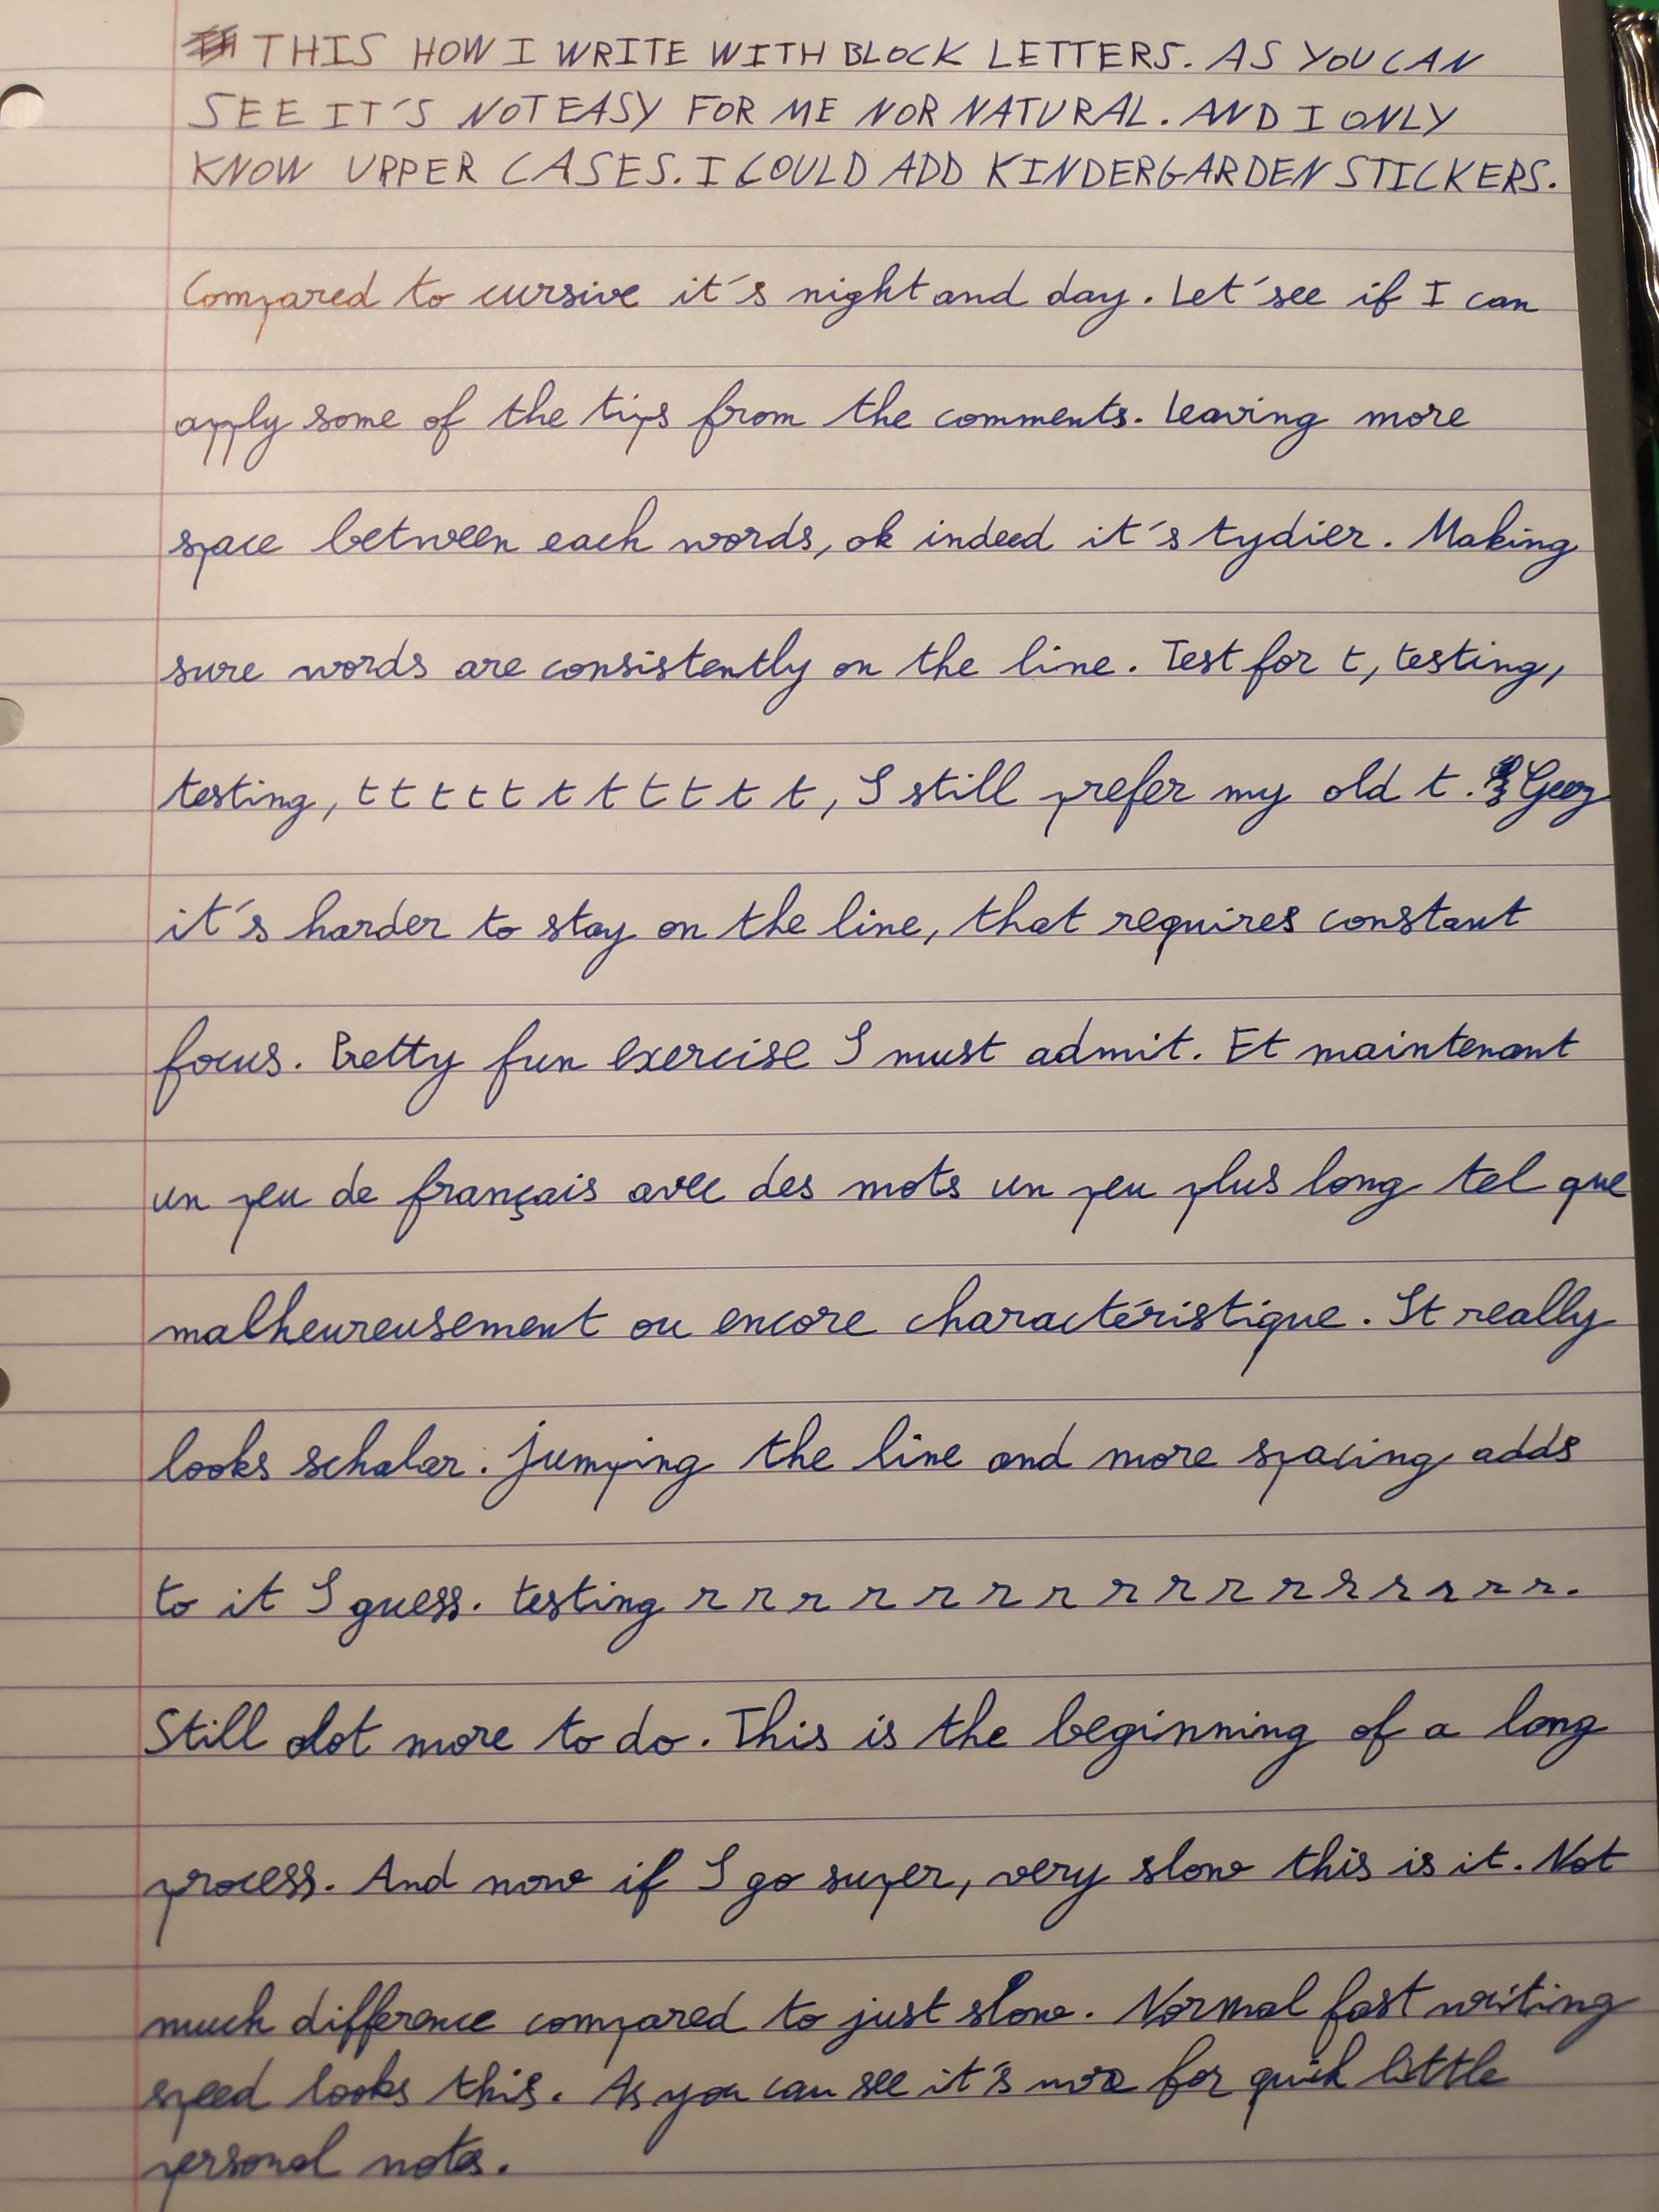 THIS HOW I WRITE WITH BLOCK LETTERS. AS YOU CAN
SEE IT'S NOT EASY FOR ME NOR NATURAL. AND I ONLY
KNOW UPPER CASES. I COULD ADD KINDERGARDEN STICKERS.
Compared to cursive it's night and day. Let'see if I can
apply some of the tips from the comments. Leaving more
space between each words, ok indeed it's tydier. Making
sure words are consistently on the line. Test for t, testing,
testing, t t t t t t t t t t t, I still prefer my old t. Geez
it's harder to stay on the line, that requires constant
focus. Pretty fun exercise I must admit. Et maintenant
un peu de français avec des mots un peu plus long tel que
malheureusement ou encore charactéristique. It really
looks scholar. jumping the line and more spacing adds
to it I guess. testing r r r r r r r r r r r r r r r r r.
Still alot more to do. This is the beginning of a long
process. And now if I go super, very slow this is it. Not
much difference compared to just slow. Normal fast writing
speed looks this. As you can see it's more for quick little
personal notes.